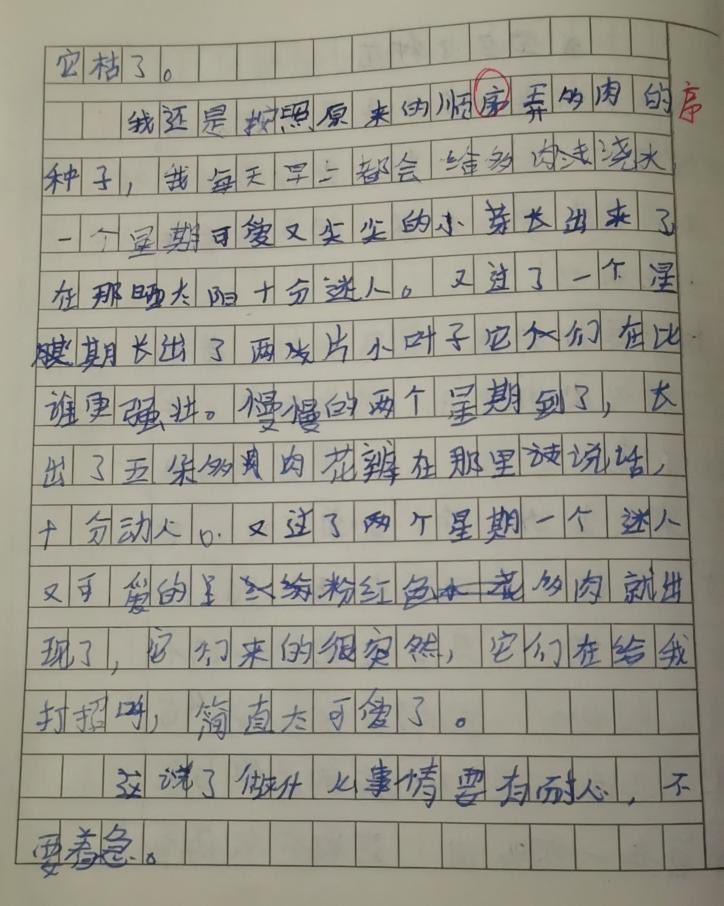 它枯了。
我还是按照原来的顺序弄多肉的 序
种子，我每天早上都会给多肉浇水
一个星期可爱又尖尖的小芽长出来了
在那晒太阳十分迷人。又过了一个星
期长出了两片小叶子它们在比
谁更强壮。慢慢的两个星期到了，长
出了五朵多肉花瓣在那里说话，
十分动人。又过了两个星期一个迷人
又可爱的呈粉红色多肉就出
现了，它们来的很突然，它们在给我
打招呼，简直太可爱了。
这说了做什么事情要有耐心，不
要着急。